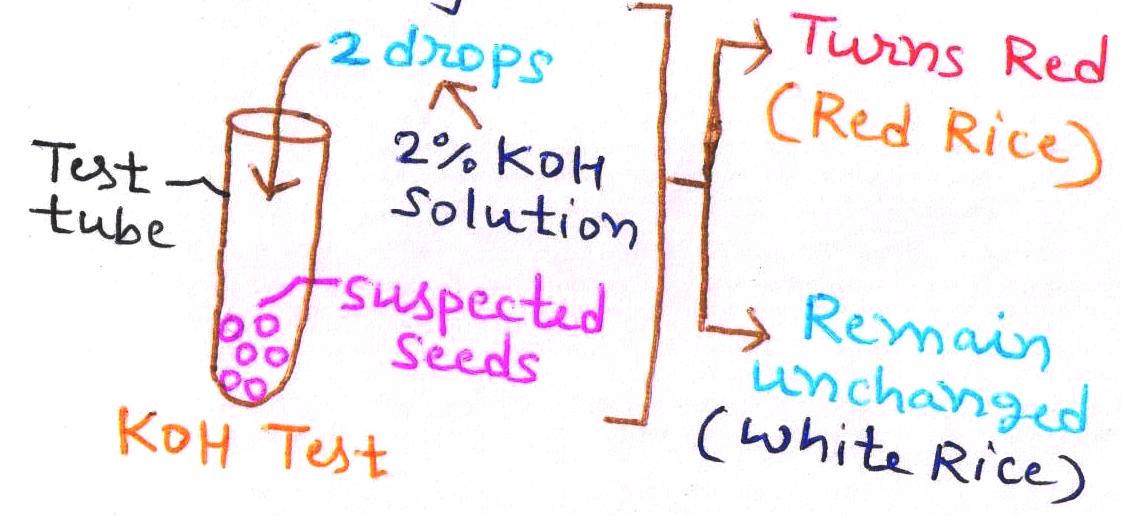 2 drops
2% KOH
Solution
Test
tube
suspected
seeds
KOH Test
Turns Red
(Red Rice)
Remain
unchanged
(White Rice)